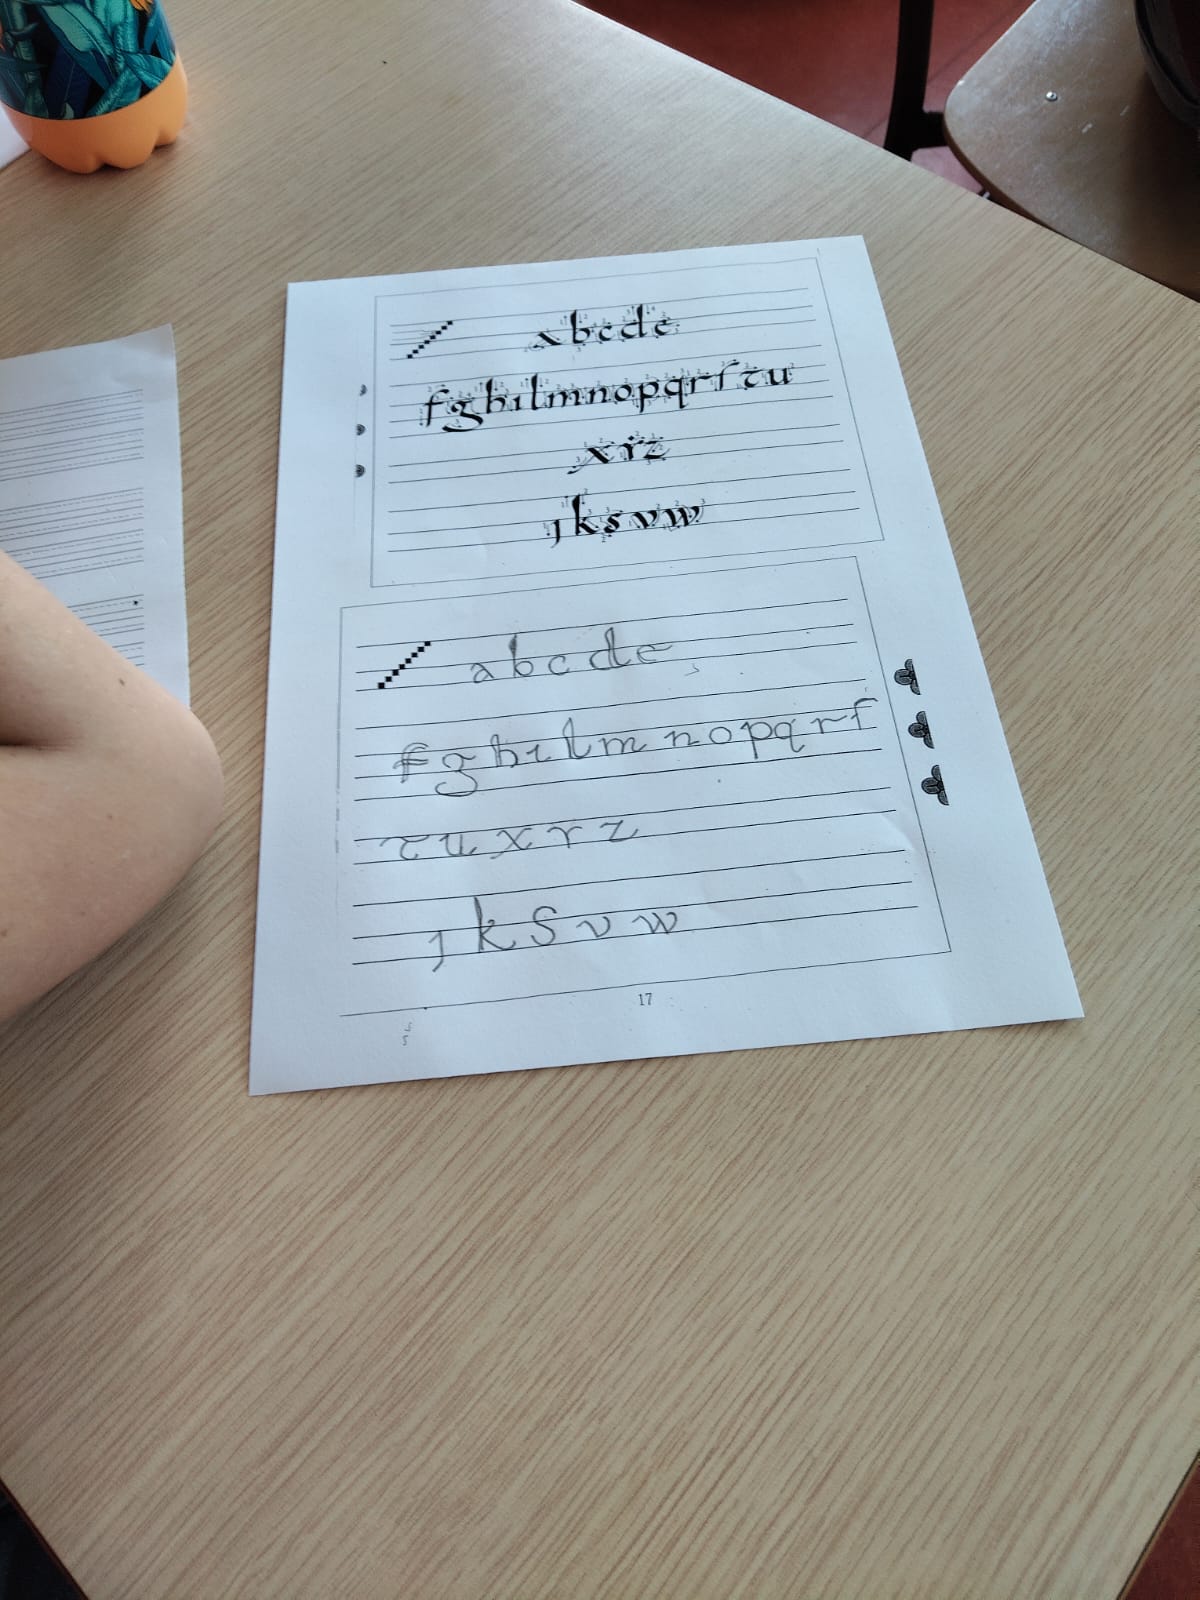 abcde
fghılmnopqrſτu
xẏz
ȷksvw
abcde
fghılmnopqrſ
τuxrz
ȷksvw
17